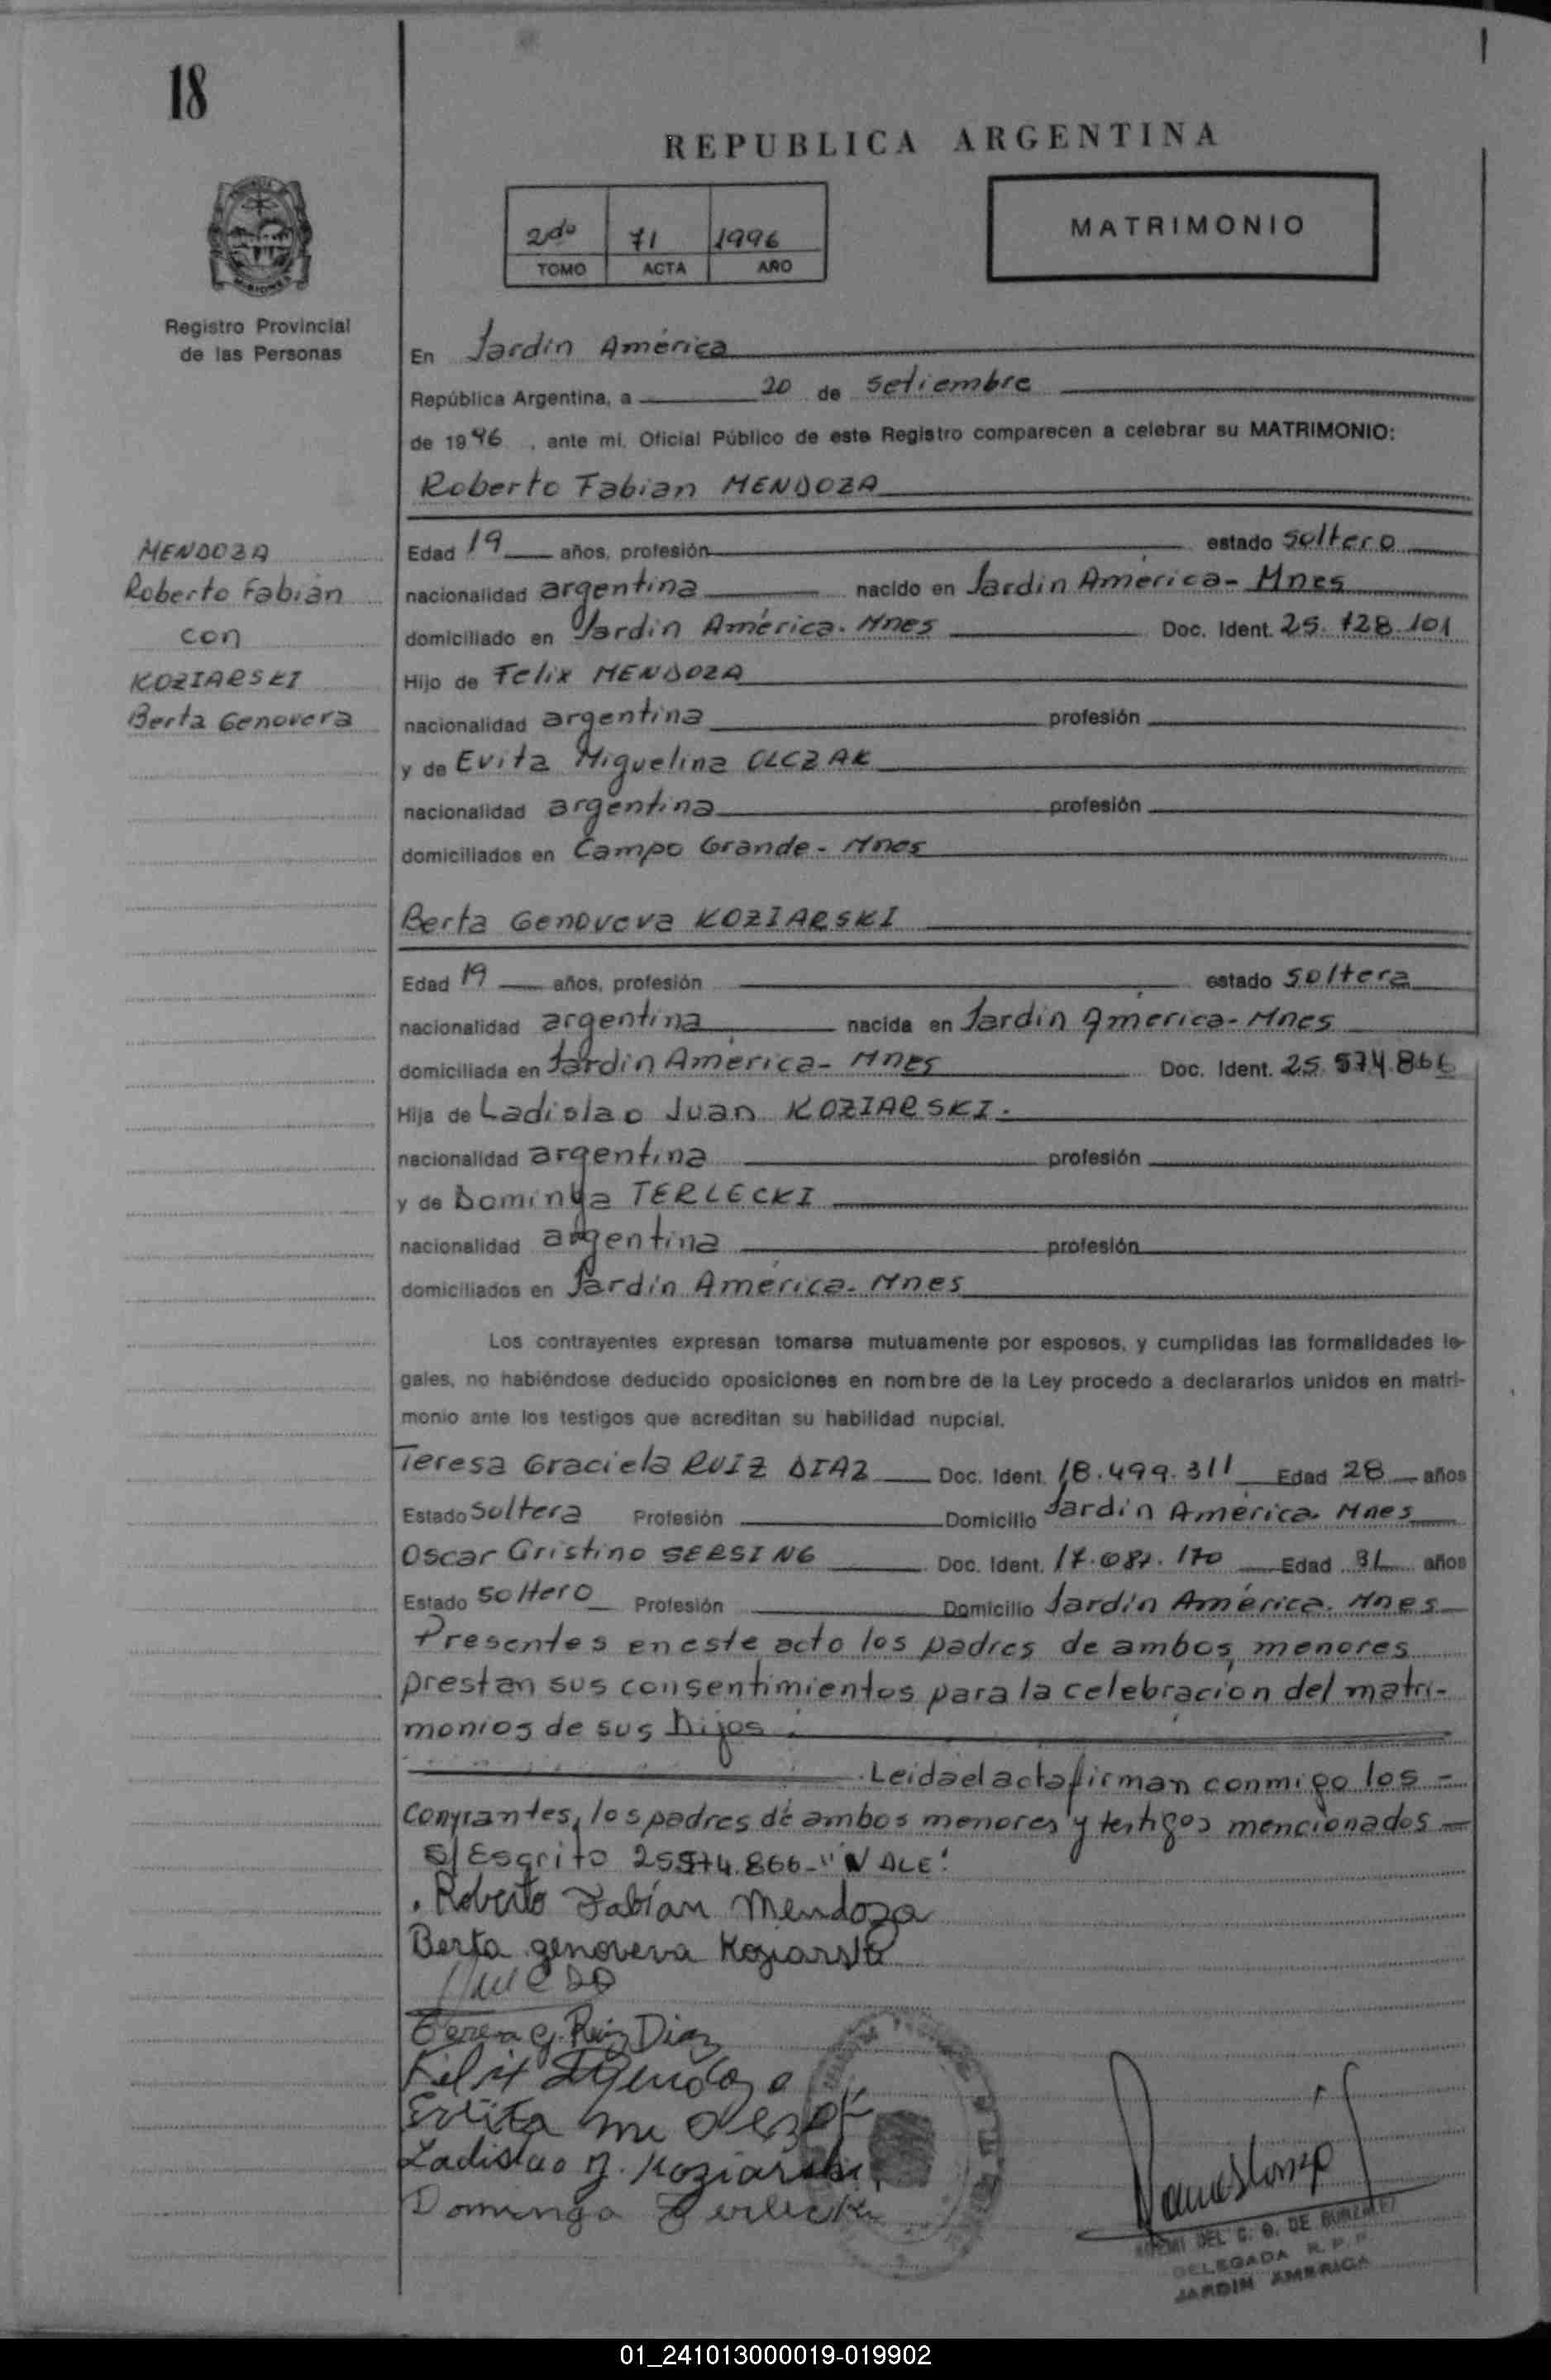 18
REPUBLICA ARGENTINA
2do 71 1996
TOMO ACTA AÑO
MATRIMONIO
Registro Provincial
de las Personas
En Jardín América
República Argentina, a 20 de setiembre
de 1996, ante mi, Oficial Público de este Registro comparecen a celebrar su MATRIMONIO:
Roberto Fabian MENDOZA
MENDOZA
Roberto Fabián
con
KOZIARSKI
Berta Genoveva
Edad 19 años, profesión estado soltero
nacionalidad argentina nacido en Jardín América - Mnes
domiciliado en Jardín América. Mnes Doc. Ident. 25.128.101
Hijo de Felix MENDOZA
nacionalidad argentina profesión
y de Evita Miguelina OLCZAK
nacionalidad argentina profesión
domiciliados en Campo Grande - Mnes
Berta Genoveva KOZIARSKI
Edad 19 años, profesión estado soltera
nacionalidad argentina nacida en Jardín América - Mnes
domiciliada en Jardín América - Mnes Doc. Ident. 25.574.866
Hija de Ladislao Juan KOZIARSKI.
nacionalidad argentina profesión
y de Dominga TERLECKI
nacionalidad argentina profesión
domiciliados en Jardín América - Mnes
Los contrayentes expresan tomarse mutuamente por esposos, y cumplidas las formalidades le-
gales, no habiéndose deducido oposiciones en nombre de la Ley procedo a declararlos unidos en matri-
monio ante los testigos que acreditan su habilidad nupcial.
Teresa Graciela RUIZ DIAZ Doc. Ident. 18.499.311 Edad 28 años
Estado Soltera Profesión Domicilio Jardín América. Mnes
Oscar Cristino SERSING Doc. Ident. Edad 31 años
Estado soltero Profesión Domicilio Jardín América. Mnes
Presentes en este acto los padres de ambos menores
prestan sus consentimientos para la celebración del matri-
monios de sus hijos.
Leida el acta firman conmigo los -
los padres de ambos menores y testigos mencionados
S/ Escrito 25574.866 - "VALE"
Roberto Fabían Mendoza
Berta genoveva Koziarski
Teresa G. Ruiz Diaz
Felix Mendoza
Evita M Olczak
Ladislao J. Koziarski
Dominga Terlecki
NOEMI DEL C. G. DE GONZALEZ
DELEGADA R. P. P.
JARDIN AMERICA
01_241013000019-019902